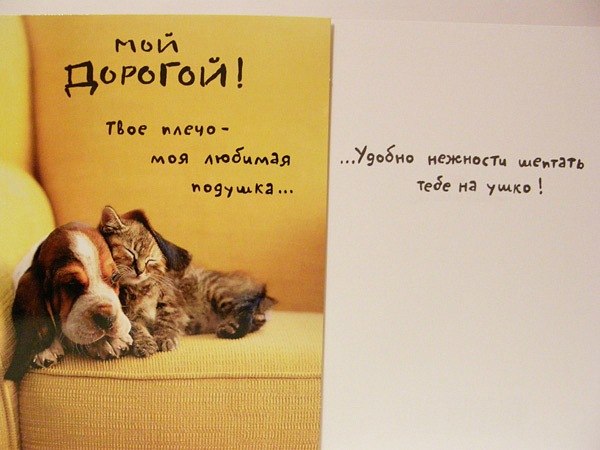 мой
Дорогой!
Твое плечо -
моя любимая
подушка...
...Удобно нежности шептать
тебе на ушко!